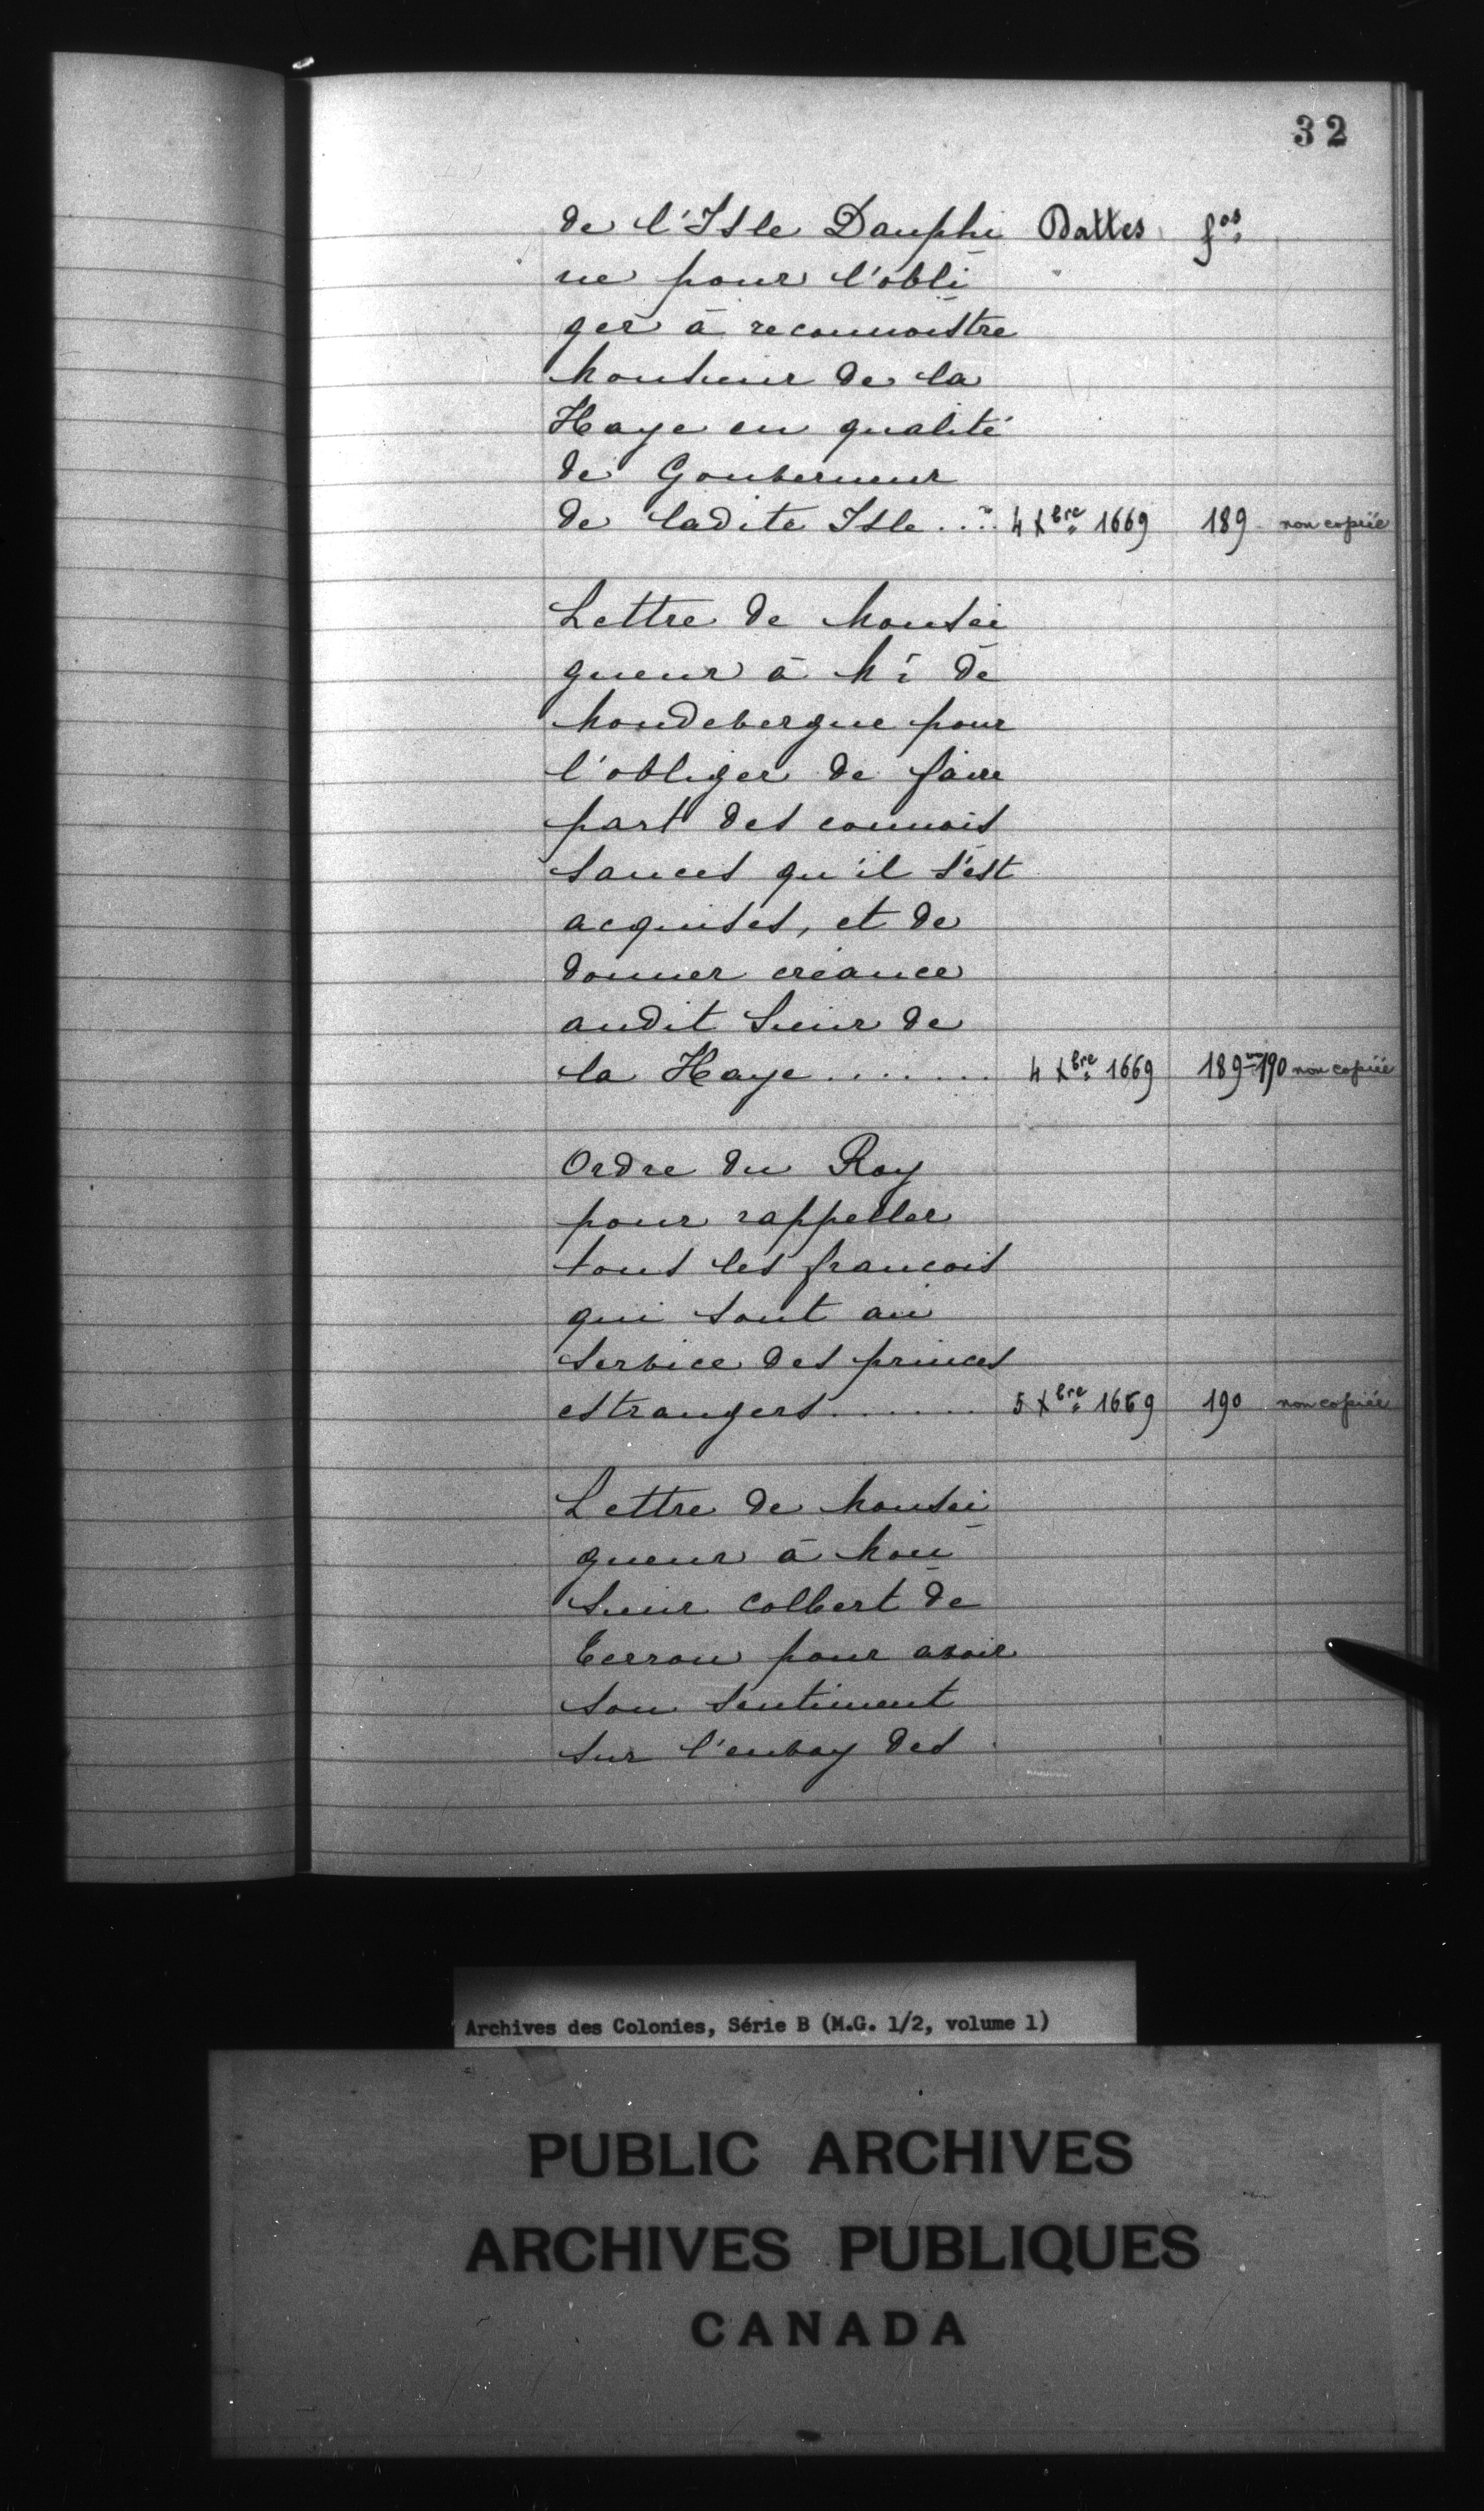 32
de l'Isle Dauphi Dattes fos
ne pour l'obli
ger à reconnoistre
Monsieur de la
Haye en qualité
de Gouverneur
de ladite Isle.... 4 Xbre 1669 189 non copiée
Lettre de Monsei
gneur à Mr de
Mondevergue pour
l'obliger de faire
part des connois
sances qu'il s'est
acquises, et de
donner créance
audit Sieur de
la Haye........ 4 Xbre 1669 189vo-190 non copiée
Ordre du Roy
pour rappeller
tous les francois
qui sont au
service des princes
estrangers....... 5 Xbre 1669 190 non copiée
Lettre de Monsei
gneur à Mon
sieur Colbert de
Terron pour avoir
son sentiment
sur l'envoy des
Archives des Colonies, Série B (M.G. 1/2, volume 1)
PUBLIC ARCHIVES
ARCHIVES PUBLIQUES
CANADA